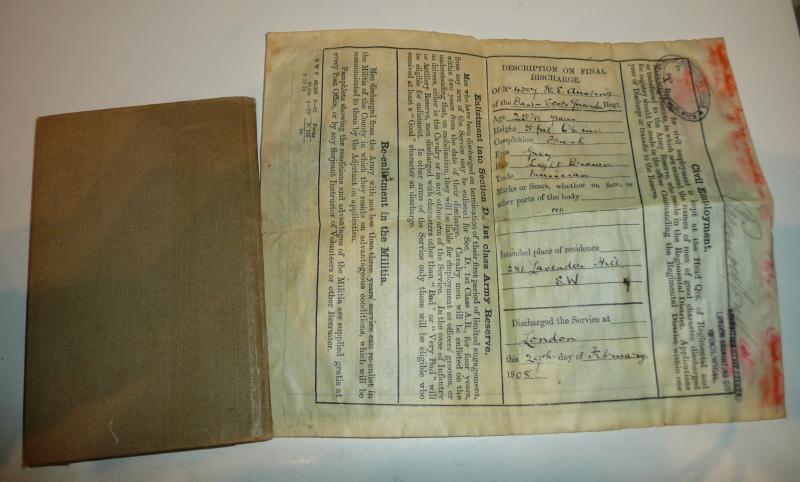 DESCRIPTION ON FINAL
DISCHARGE.
Of No
of the Scots Guards Regt.
Age 28 years
Height 5 feet 6 in
Complexion Fresh
Eyes Grey
Hair Light Brown
Trade Musician
Marks or Scars, whether on face, or
other parts of the body
Nil
Intended place of residence
281 Lavender Hill
S.W
Discharged the Service at
London
this 29th day of February
1908
Civil Employment.
A Register for civil employment is kept at the Head Qrs. of Regimental and
Districts, in which are entered the names of men of good character discharged
or transferred to the Army Reserve, who reside in the Regimental District. Applications
for registry should be made to the officer Commanding the Regimental District within one
year of Discharge or transfer to the Reserve.
Enlistment into Section D., 1st class Army Reserve.
Men who have been discharged on termination of their first period of limited engagement,
from any arm of the Service may be enlisted for Sec. D., 1st Class A.R., for four years,
within two years from the date of their discharge. Cavalry men will be enlisted on the
understanding that, on mobilization, they will be liable for employment as officers' grooms, or
as drivers, either in the Cavalry or in any other arm of the Service. In the case of Infantry
or Artillery Reserve, men discharged with characters other than "Bad" or "Very Bad" will
be eligible for enlistment. In other arms of the Service only those will be eligible who
received at least a "Good" character on discharge.
Re-enlistment in the Militia.
Men discharged from the Army with not less than three years' service can re-enlist in
the Militia of the County in which they reside on advantageous conditions, which will be
communicated to them by the adjutant on application.
Pamphlets showing the conditions and advantages of the Militia are supplied gratis at
every Post Office, or by any Serjeant Instructor of Volunteers or other Recruiter.